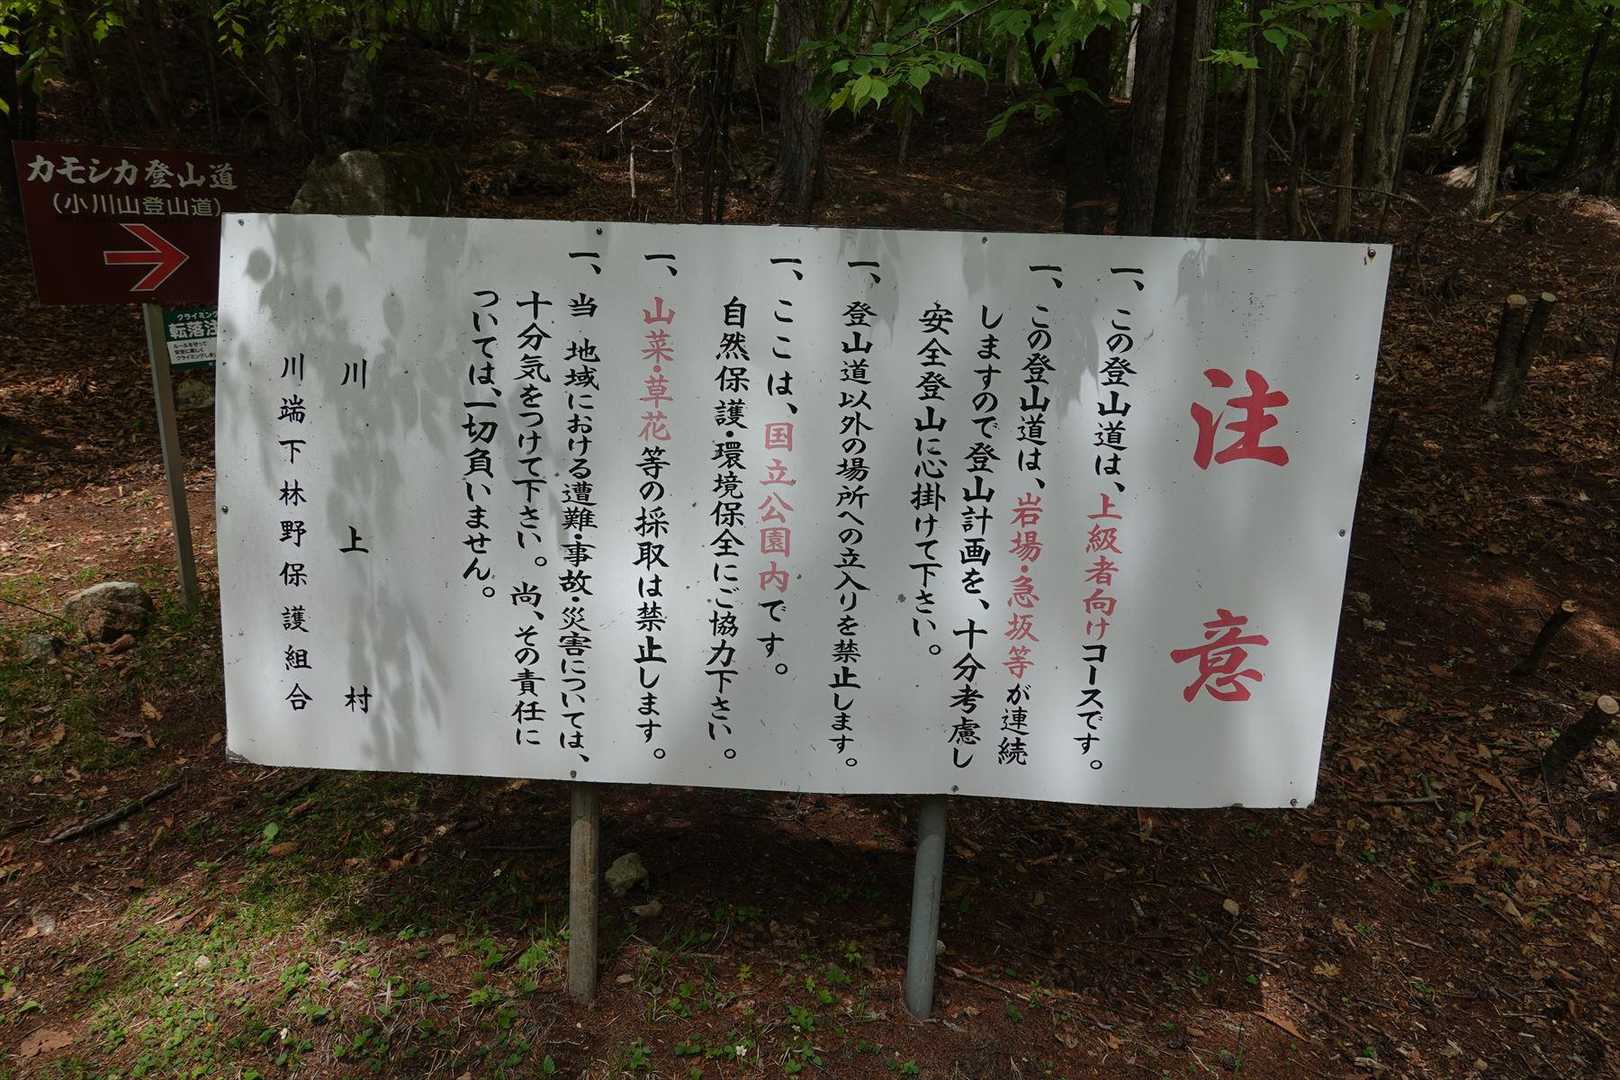 注意
一、この登山道は、上級者向けコースです。
一、この登山道は、岩場・急坂等が連続
しますので登山計画を、十分考慮し
安全登山に心掛けて下さい。
一、登山道以外の場所への立入りを禁止します。
一、ここは、国立公園内です。
自然保護・環境保全にご協力下さい。
一、山菜・草花等の採取は禁止します。
一、当 地域における遭難・事故・災害については、
十分気をつけて下さい。尚、その責任に
ついては、一切負いません。
川上村
川端下林野保護組合
カモシカ登山道
(小川山登山道)
クライミング
転落注